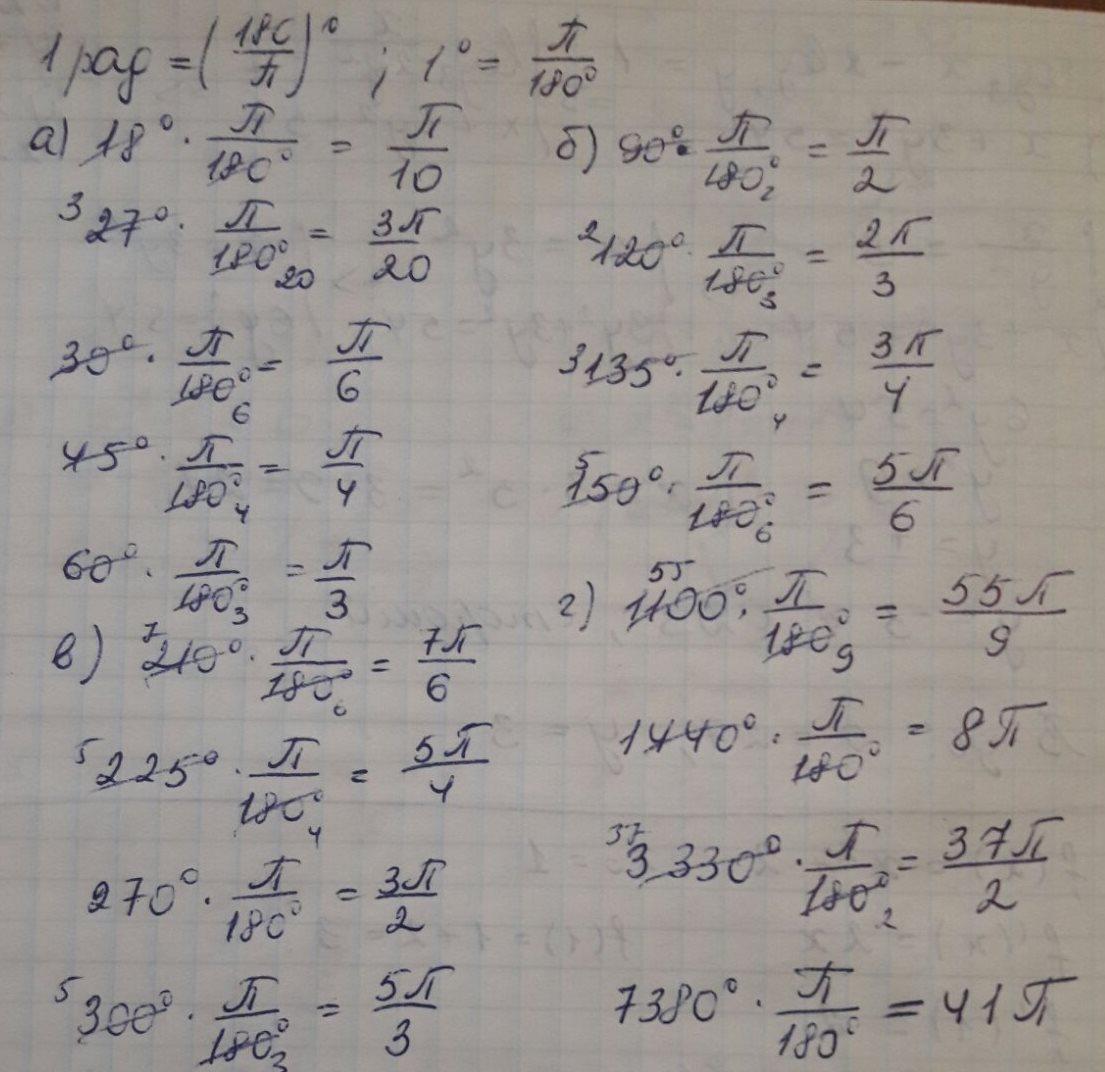 1 рад = (180/π)° ; 1° = π/180°
а) 18° · π/180° = π/10
27° · π/180° = 3π/20
30° · π/180° = π/6
45° · π/180° = π/4
60° · π/180° = π/3
б) 90° · π/180° = π/2
120° · π/180° = 2π/3
135° · π/180° = 3π/4
150° · π/180° = 5π/6
в) 210° · π/180° = 7π/6
225° · π/180° = 5π/4
270° · π/180° = 3π/2
300° · π/180° = 5π/3
г) 1100° · π/180° = 55π/9
1440° · π/180° = 8π
3330° · π/180° = 37π/2
7380° · π/180° = 41π